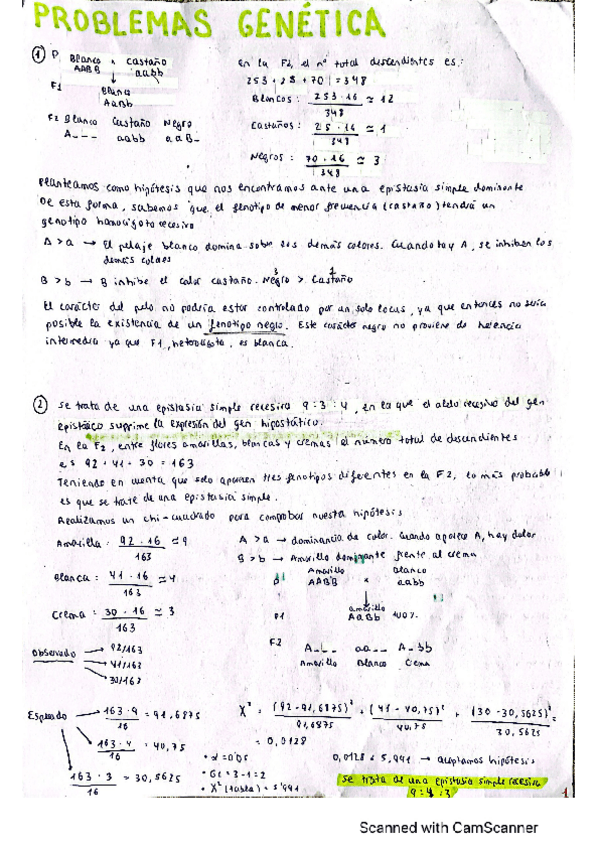 PROBLEMAS GENÉTICA
① P Blanco x castaño
AABB aabb
F1 Blanco
AaBb
F2 Blanco Castaño Negro
A--- aabb aaB-
En la F2, el nº total descendientes es:
253 + 25 + 70 = 348
Blancos: 253·16 / 348 ≃ 12
Castaños: 25·16 / 348 ≃ 1
Negros: 70·16 / 348 ≃ 3
Planteamos como hipótesis que nos encontramos ante una epistasia simple dominante
De esta forma, sabemos que el fenotipo de menor frecuencia (castaño) tendrá un
genotipo homocigoto recesivo
A > a → El pelaje blanco domina sobre los demás colores. Cuando hay A, se inhiben los
demás colores
B > b → B inhibe el color castaño. Negro > Castaño
3 1
El carácter del pelo no podría estar controlado por un solo locus, ya que entonces no sería
posible la existencia de un fenotipo negro. Este carácter negro no proviene de herencia
intermedia ya que F1, heterocigota, es blanca.
② Se trata de una epistasia simple recesiva 9:3:4, en la que el alelo recesivo del gen
epistático suprime la expresión del gen hipostático.
En la F2, entre flores amarillas, blancas y cremas el número total de descendientes
es 92 + 41 + 30 = 163
Teniendo en cuenta que solo aparecen tres fenotipos diferentes en la F2, lo más probable
es que se trate de una epistasia simple.
Realizamos un chi-cuadrado para comprobar nuestra hipótesis
Amarilla: 92·16 / 163 ≃ 9
Blanca: 41·16 / 163 ≃ 4
Crema: 30·16 / 163 ≃ 3
A > a → dominancia de color. Cuando aparece A, hay color
B > b → Amarillo dominante frente al crema
Amarillo Blanco
AABB x aabb
F1 amarillo
AaBb 100%
F2 A-L- aa-- A-bb
Amarillo Blanco Crema
Observado → 92/163
→ 41/163
→ 30/163
Esperado → 163·9 / 16 = 91,6875
163·4 / 16 = 40,75
163·3 / 16 = 30,5625
X² = (92-91,6875)² / 91,6875 + (41-40,75)² / 40,75 + (30-30,5625)² / 30,5625 =
= 0,0128
• α = 0'05
• GL = 3-1 = 2
• X² (tabla) = 5'991
0,0128 < 5,991 → aceptamos hipótesis
Se trata de una epistasia simple recesiva
9:4:3
1
Scanned with CamScanner